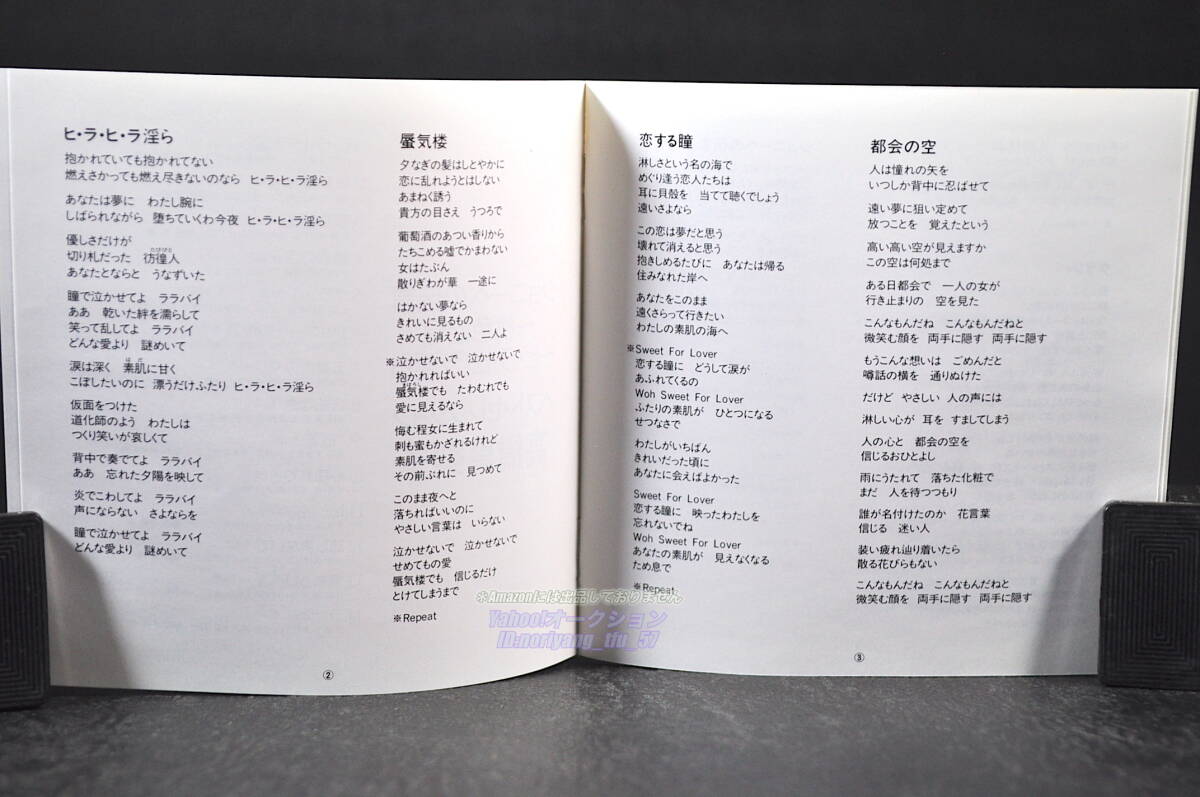 ヒ・ラ・ヒ・ラ淫ら
抱かれていても抱かれてない
燃えさかっても燃え尽きないのなら　ヒ・ラ・ヒ・ラ淫ら
あなたは夢に　わたし腕に
しばられながら　堕ちていくわ今夜　ヒ・ラ・ヒ・ラ淫ら
優しさだけが
切り札だった　彷徨人
あなたとならと　うなずいた
瞳で泣かせてよ　ララバイ
ああ　乾いた絆を濡らして
笑って乱してよ　ララバイ
どんな愛より　謎めいて
涙は深く　素肌に甘く
こぼしたいのに　漂うだけふたり　ヒ・ラ・ヒ・ラ淫ら
仮面をつけた
道化師のよう　わたしは
つくり笑いが哀しくて
背中で奏でてよ　ララバイ
ああ　忘れた夕陽を映して
炎でこわしてよ　ララバイ
声にならない　さよならを
瞳で泣かせてよ　ララバイ
どんな愛より　謎めいて
蜃気楼
夕なぎの髪はしとやかに
恋に乱れようとはしない
あまねく誘う
貴方の目さえ　うつろで
葡萄酒のあつい香りから
たちこめる嘘でかまわない
女はたぶん
散りぎわが華　一途に
はかない夢なら
きれいに見るもの
さめても消えない　二人よ
※泣かせないで　泣かせないで
抱かれればいい
蜃気楼でも　たわむれでも
愛に見えるなら
悔む程女に生まれて
刺も蜜もかざれるけれど
素肌を寄せる
その前ぶれに　見つめて
このまま夜へと
落ちればいいのに
やさしい言葉は　いらない
泣かせないで　泣かせないで
せめてもの愛
蜃気楼でも　信じるだけ
とけてしまうまで
※Repeat
②
恋する瞳
淋しさという名の海で
めぐり逢う恋人たちは
耳に貝殻を　当てて聴くでしょう
遠いさよなら
この恋は夢だと思う
壊れて消えると思う
抱きしめるたびに　あなたは帰る
住みなれた岸へ
あなたをこのまま
遠くさらって行きたい
わたしの素肌の海へ
※Sweet For Lover
恋する瞳に　どうして涙が
あふれてくるの
Woh Sweet For Lover
ふたりの素肌が　ひとつになる
せつなさで
わたしがいちばん
きれいだった頃に
あなたに会えばよかった
Sweet For Lover
恋する瞳に　映ったわたしを
忘れないでね
Woh Sweet For Lover
あなたの素肌が　見えなくなる
ため息で
※Repeat
都会の空
人は憧れの矢を
いつしか背中に忍ばせて
遠い夢に狙い定めて
放つことを　覚えたという
高い高い空が見えますか
この空は何処まで
ある日都会で　一人の女が
行き止まりの　空を見た
こんなもんだね　こんなもんだねと
微笑む顔を　両手に隠す　両手に隠す
もうこんな想いは　ごめんだと
噂話の横を　通りぬけた
だけど　やさしい　人の声には
淋しい心が　耳を　すましてしまう
人の心と　都会の空を
信じるおひとよし
雨にうたれて　落ちた化粧で
まだ　人を待つつもり
誰が名付けたのか　花言葉
信じる　迷い人
装い疲れ辿り着いたら
散る花びらもない
こんなもんだね　こんなもんだねと
微笑む顔を　両手に隠す　両手に隠す
③
＊Amazonには出品しておりません
Yahoo!オークション
ID:noriyang_tfu_57